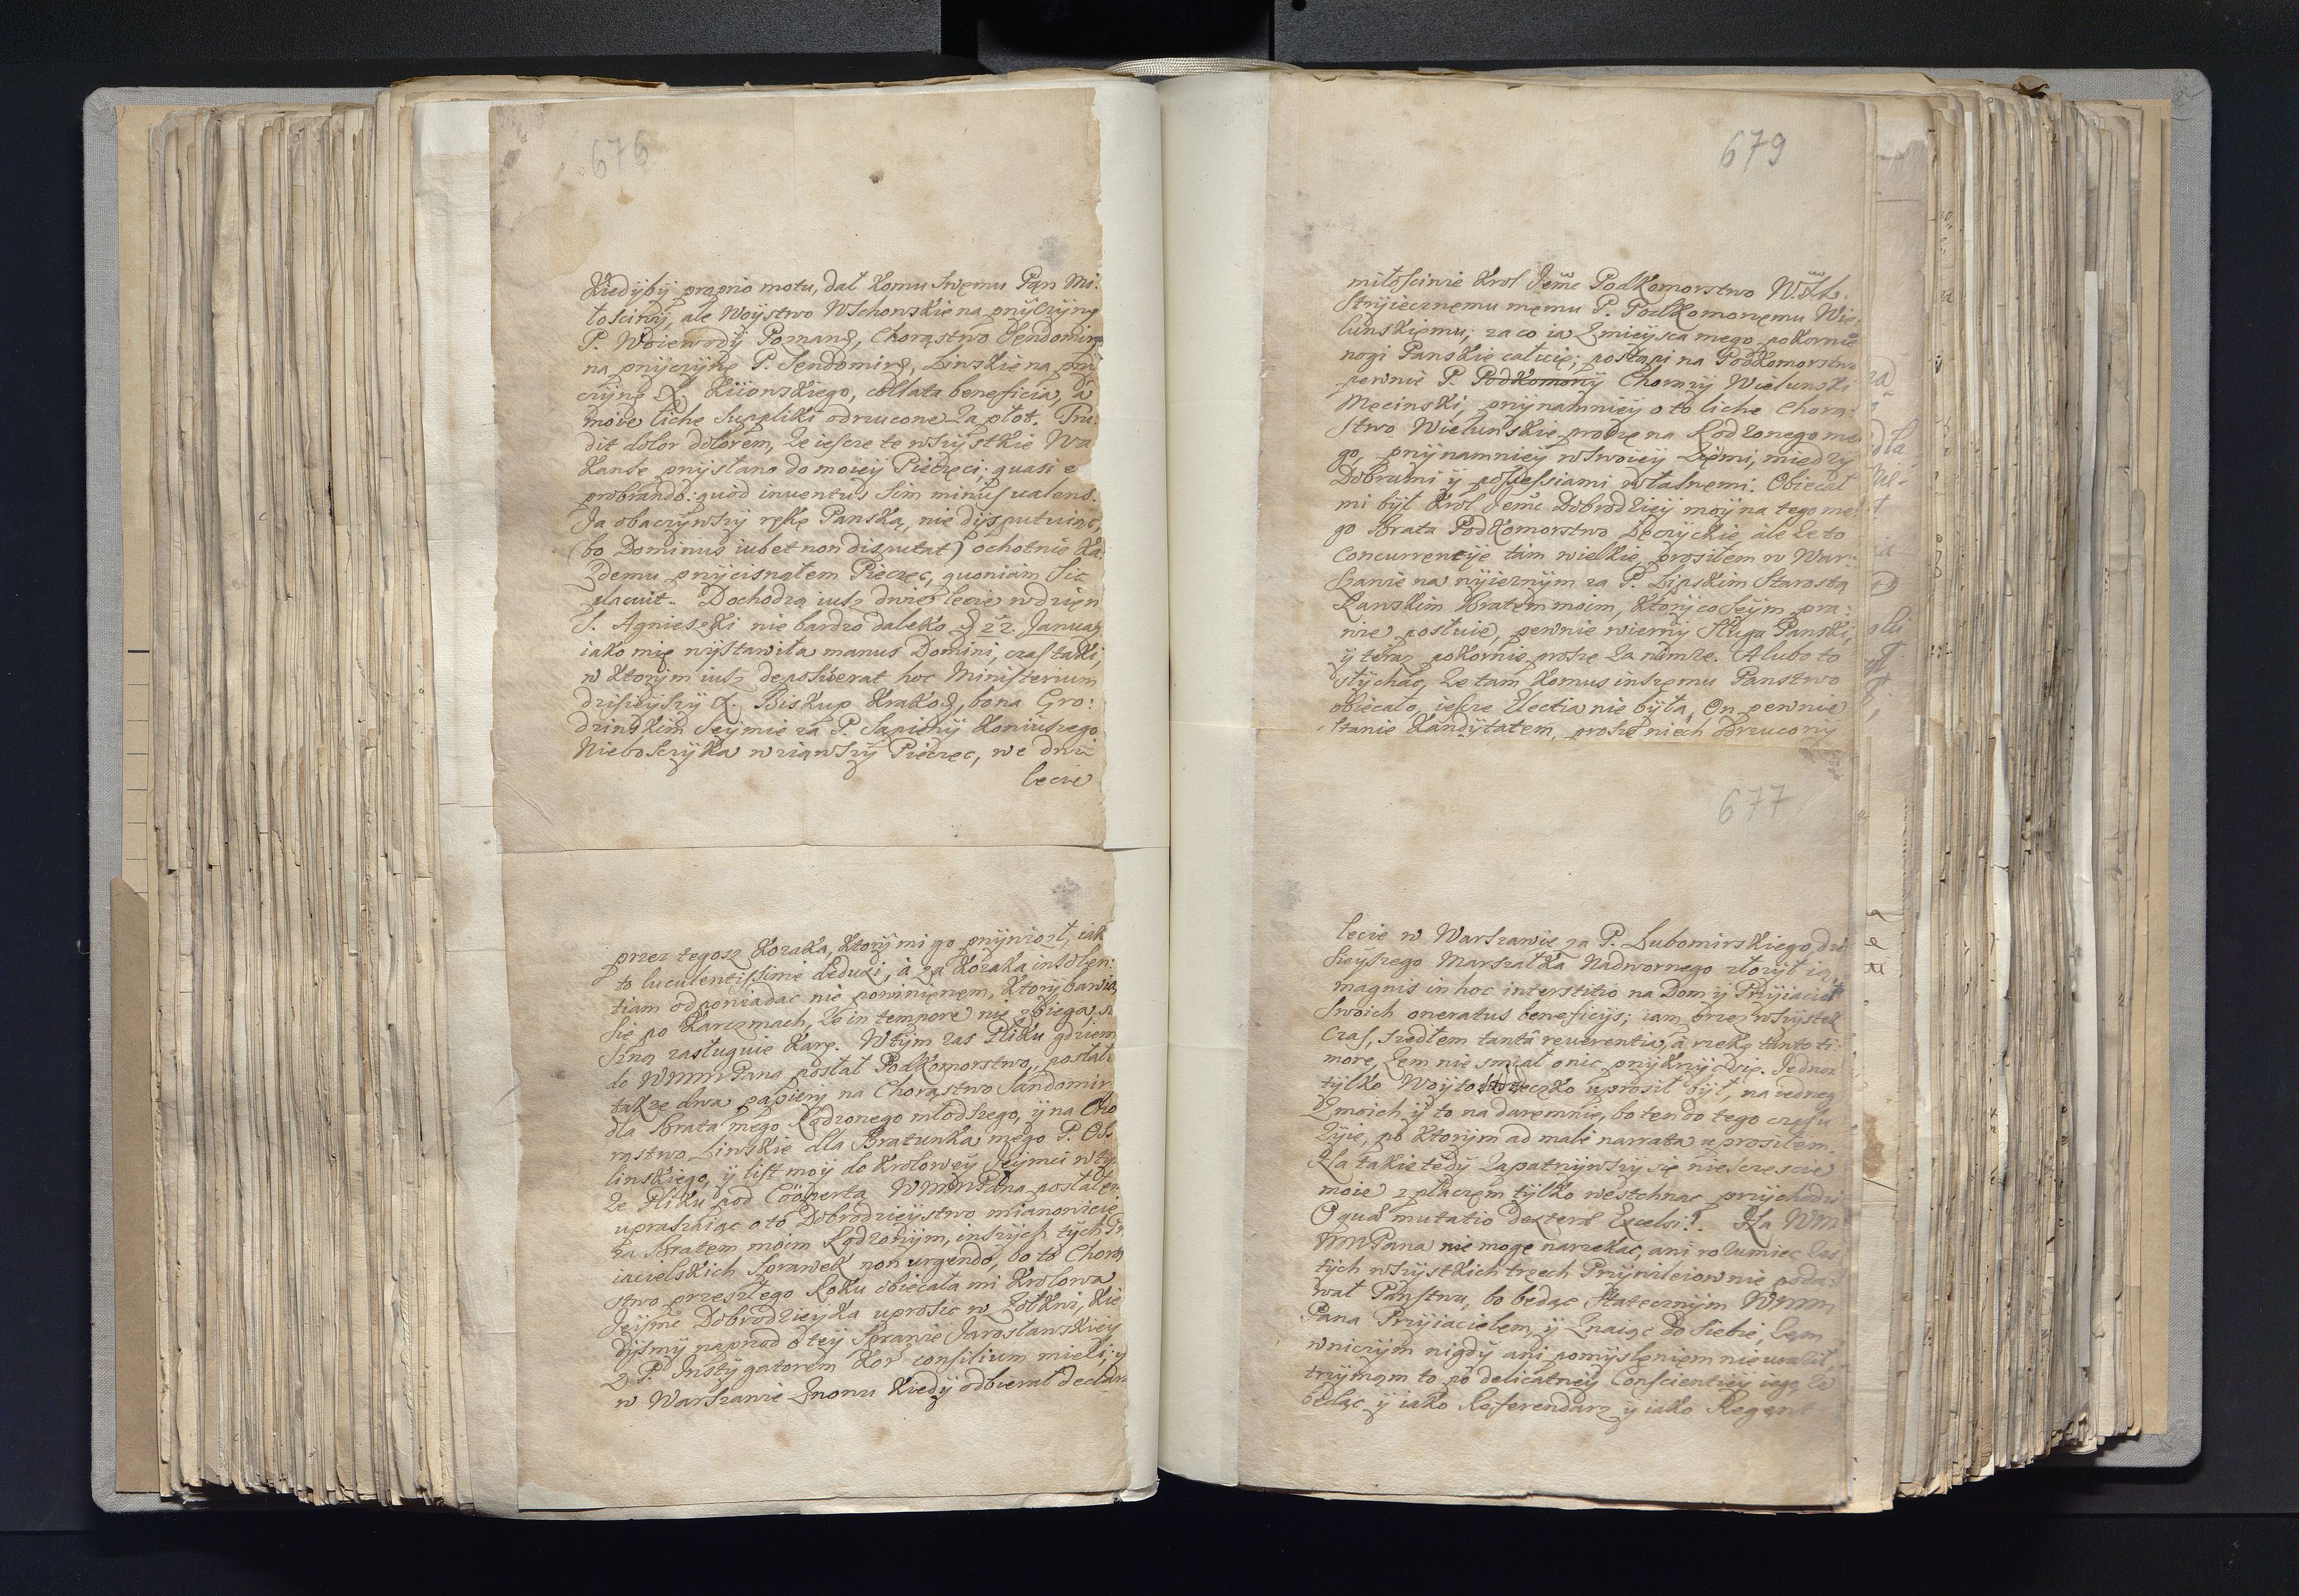 676
Kiedÿbÿ proprio motu, dał komu swemu Pan Mi:
łosciwÿ, ale Woÿstwo Wschowskie na przÿczÿnę
P. Woiewodÿ Poznans, Chorąstwo Sendomirs
na przÿczÿnę P. Sendomirs, Linskie na
czÿnę X. Kiiowskiego, collata beneficia, a
moie liche suppliki odrucone za płot. Tru:
dit dolor dolorem, że iescze te wszÿstkie Wa
kanse przÿsłano do moieÿ Pieczęci; quasi e
probrando: quòd inventus sim minus valens.
Ja obaczÿwszÿ rękę Panską, nie dÿsputuiąc,
(bo Dominus iubet non disputat) ochotnie ka:
zdemu przÿcisnąłem Pieczęc, quoniam sic
placuit. Dochodzą iusz dwie lecie w dzien
S. Agnieszki nie bardzo daleko 22. Januar
iako mię wÿstawiła manus Domini, czas taki,
w ktorÿm iusz deposuerat hoc Ministerium
dzisieÿszÿ X. Biskup Krakos, bo na Gro:
dzinskim Seÿmie za P. Sapiehÿ Koniuszego
Nieboszczÿka wziąwszÿ Pieczęc, we dwu
lecie
przez tegosz Kozaka, ktorÿ mi go przÿniozł, iak
to luculentissime deduxi, à za Kozaka insolen:
tiam odpowiadac nie powinienem, ktorÿ bawiąc
się po karczmach, że in tempore nie zbiega,
szną zasługuie karę. W tÿm zas Pliku gdziem
do WMMPana posłał Podkomorstwo, posłałem
takze dwa papierÿ na Chorąstwo Sandomir
dla Brata mego Rodzonego młodszego, ÿ na Cho
rąstwo Linskie dla Bratunka mego P. Os
linskiego, ÿ list moÿ do Kroloweÿ Jeÿmci w tÿm
ze Pliku pod Cööperta WMMPana posłałem
upraszaiąc o to Dobrodzieÿstwo mianowicie
za Bratem moim Rodzonÿm, inszÿch tÿch
iacielskich sprawek non urgendo, bo to Chorą
stwo przeszłego Roku obiecała mi Krolowa
Jeÿmc Dobrodzieÿka uprosic w Żołkwi, kie
dÿsmÿ naprzod o teÿ sprawie Jarosławskieÿ
z P. Instÿgatorem Kor consilium mieli; ÿ
w Warszawie znowu kiedÿ odbierał
679
miłosciwie Krol Jemc Podkomorstwo
Strÿiecznemu memu P. Podkomorzemu Wie:
lunskiemu; za co ia z mieÿsca mego pokornie
nogi Panskie całuię; postąpi na Podkomorstwo
pewnie P. Podkomorzÿ Chorązÿ Wielunski
Męcinski, przÿnamnieÿ o to liche Chorą:
stwo Wielunskie proszę na Rodzonego me
go, przÿnamnieÿ w swoieÿ Ziemi, miedzÿ
Dobrami ÿ possessiami własnemi. Obiecał
mi bÿł Krol Jemc Dobrodzieÿ moÿ na tego me:
go Brata Podkomorstwo Łęczÿckie, ale że to
Concurrentÿe tam wielkie, prosiłem w War:
szawie na wÿieznÿm za P. Lipskim Starostą
Rawskim Bratem moim, ktorÿ co Seÿm pra:
wie posłuie, pewnie wiernÿ sługa Panski,
ÿ teraz pokornie proszę za nimze. A lubo to
słÿchac, że tam komus inszemu Panstwo
obiecało, iescze Electia nie bÿła, On pewnie
stanie Kandÿtatem, proszę niech odrzuconÿ
677
lecie w Warszawie za P. Lubomirskiego dzi
sieÿszego Marszałka Nadwornego złozÿł ią,
magnis in hoc interstitio na Dom ÿ Przÿiacioł
swoich oneratus beneficÿs; iam przez wszÿstek
czas, szedłem tantâ reverentiâ, à rzekę tanto ti:
more, żem nie smiał o nic przÿkrzÿc się. Jedno
tÿlko Woÿto uprosił bÿł, na iedneg
z moich ÿ to na daremnie, bo ten do tego czasu
zÿie, po ktorÿm ad malè narrata uprosiłem.
Na takie tedÿ zapatrzÿwszÿ się niesczescie
moie z płaczem tÿlko westchnac przÿchodzi
O quae mutatio dexterae Excelsi!. Na WM
MMPana nie mogę narzekac, ani rozumiec zes
tÿch wszÿstkich trzech Przÿwileiow nie poda:
wał Panstwu, bo będąc statecznÿm WMM
Pana Przÿiacielem, ÿ znaiąc do siebie, żem
w niczÿm nigdÿ ani pomÿsleniem nie uraził,
trzÿmam to po delicatneÿ Conscientieÿ iego że
będąc ÿ iako Referendarz ÿ iako Regent